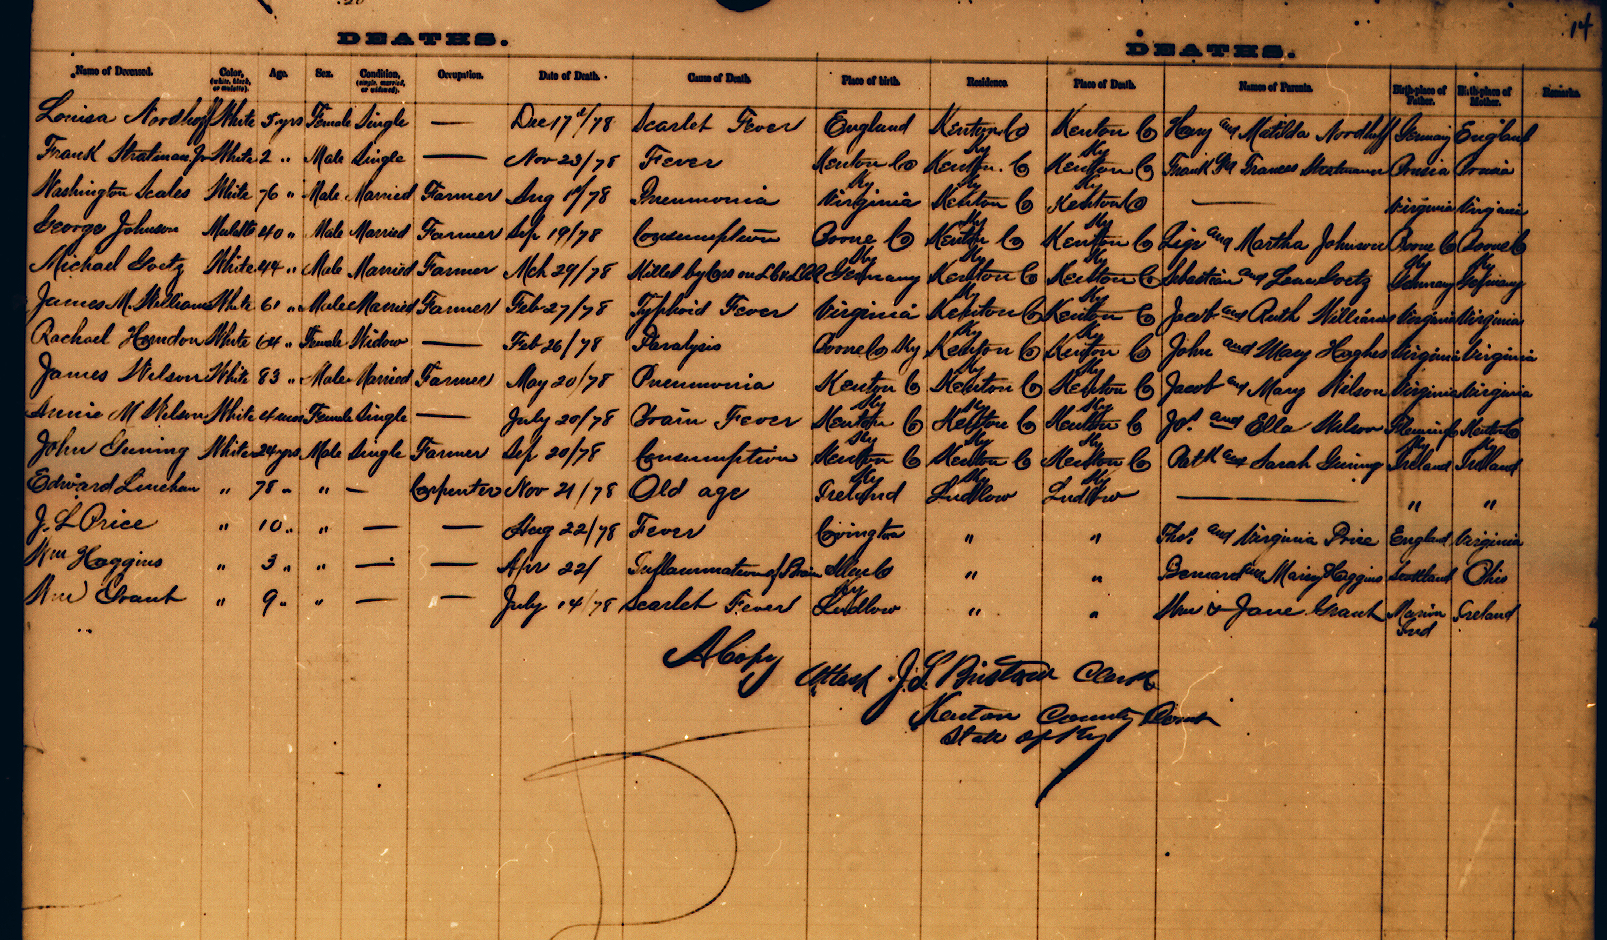 14
DEATHS. DEATHS.
Name of Deceased. Color, (white, black, or mulatto). Age. Sex. Condition, (single, married, or widowed). Occupation. Date of Death. Cause of Death. Place of birth. Residence. Place of Death. Names of Parents. Birthplace of Father. Birthplace of Mother. Remarks.
Louisa Nordhoff White 5 yrs Female Single — Dec 17th/78 Scarlet Fever England Kenton Co Ky Kenton Co Ky Henry and Matilda Nordhoff Germany England
Frank Stratman Jr White 2 " Male Single — Nov 23/78 Fever Kenton Co Ky Kenton Co Ky Kenton Co Ky Frank and Frances Stratman Prusia Prusia
Washington Scales White 76 " Male Married Farmer Aug 1st/78 Pneumonia Virginia Kenton Co Ky Kenton Co Ky — Virginia Virginia
George Johnson Mulatto 40 " Male Married Farmer Sep 19/78 Consumption Boone Co Ky Kenton Co Kenton Co and Martha Johnson Boone Co Ky Boone Co Ky
Michael Goetz White 44 " Male Married Farmer Mch 29/78 Killed by Cars on Germany Kenton Co Ky Kenton Co Ky Sebastian and Lena Goetz Germany Germany
James M. Williams White 61 " Male Married Farmer Feb 27/78 Typhoid Fever Virginia Kenton Co Ky Kenton Co Ky Jacob and Ruth Williams Virginia Virginia
Rachael Herndon White 64 " Female Widow — Feb 26/78 Paralysis Boone Co Ky Kenton Co Ky Kenton Co Ky John and Mary Hughes Virginia Virginia
James Wilson White 83 " Male Married Farmer May 20/78 Pneumonia Kenton Co Ky Kenton Co Ky Kenton Co Ky Jacob and Mary Wilson Virginia Virginia
Annie M Wilson White 4 mos Female Single — July 20/78 Brain Fever Kenton Co Ky Kenton Co Ky Kenton Co Ky Jos. and Ella Wilson Kenton Co Ky
John Guning White 24 yrs Male Single Farmer Sep 20/78 Consumption Kenton Co Ky Kenton Co Ky Kenton Co Ky Patk and Sarah Guning Ireland Ireland
Edward Linehan " 78 " " — Carpenter Nov 21/78 Old age Ireland Ludlow Ludlow — " "
J. L Price " 10 " " — — Aug 22/78 Fever Covington " " Thos. and Virginia Price England Virginia
Wm Hoggins " 3 " " — — Apr 22/ Inflammation of Brain Ky " " Bernard and Mary Hoggins Scotland Ohio
Wm Grant " 9 " " — — July 14/78 Scarlet Fever Ludlow " " Wm & Jane Grant Marion Ind Ireland
A Copy
Attest J. L. Bristow Clerk
Kenton County Court
State of Ky